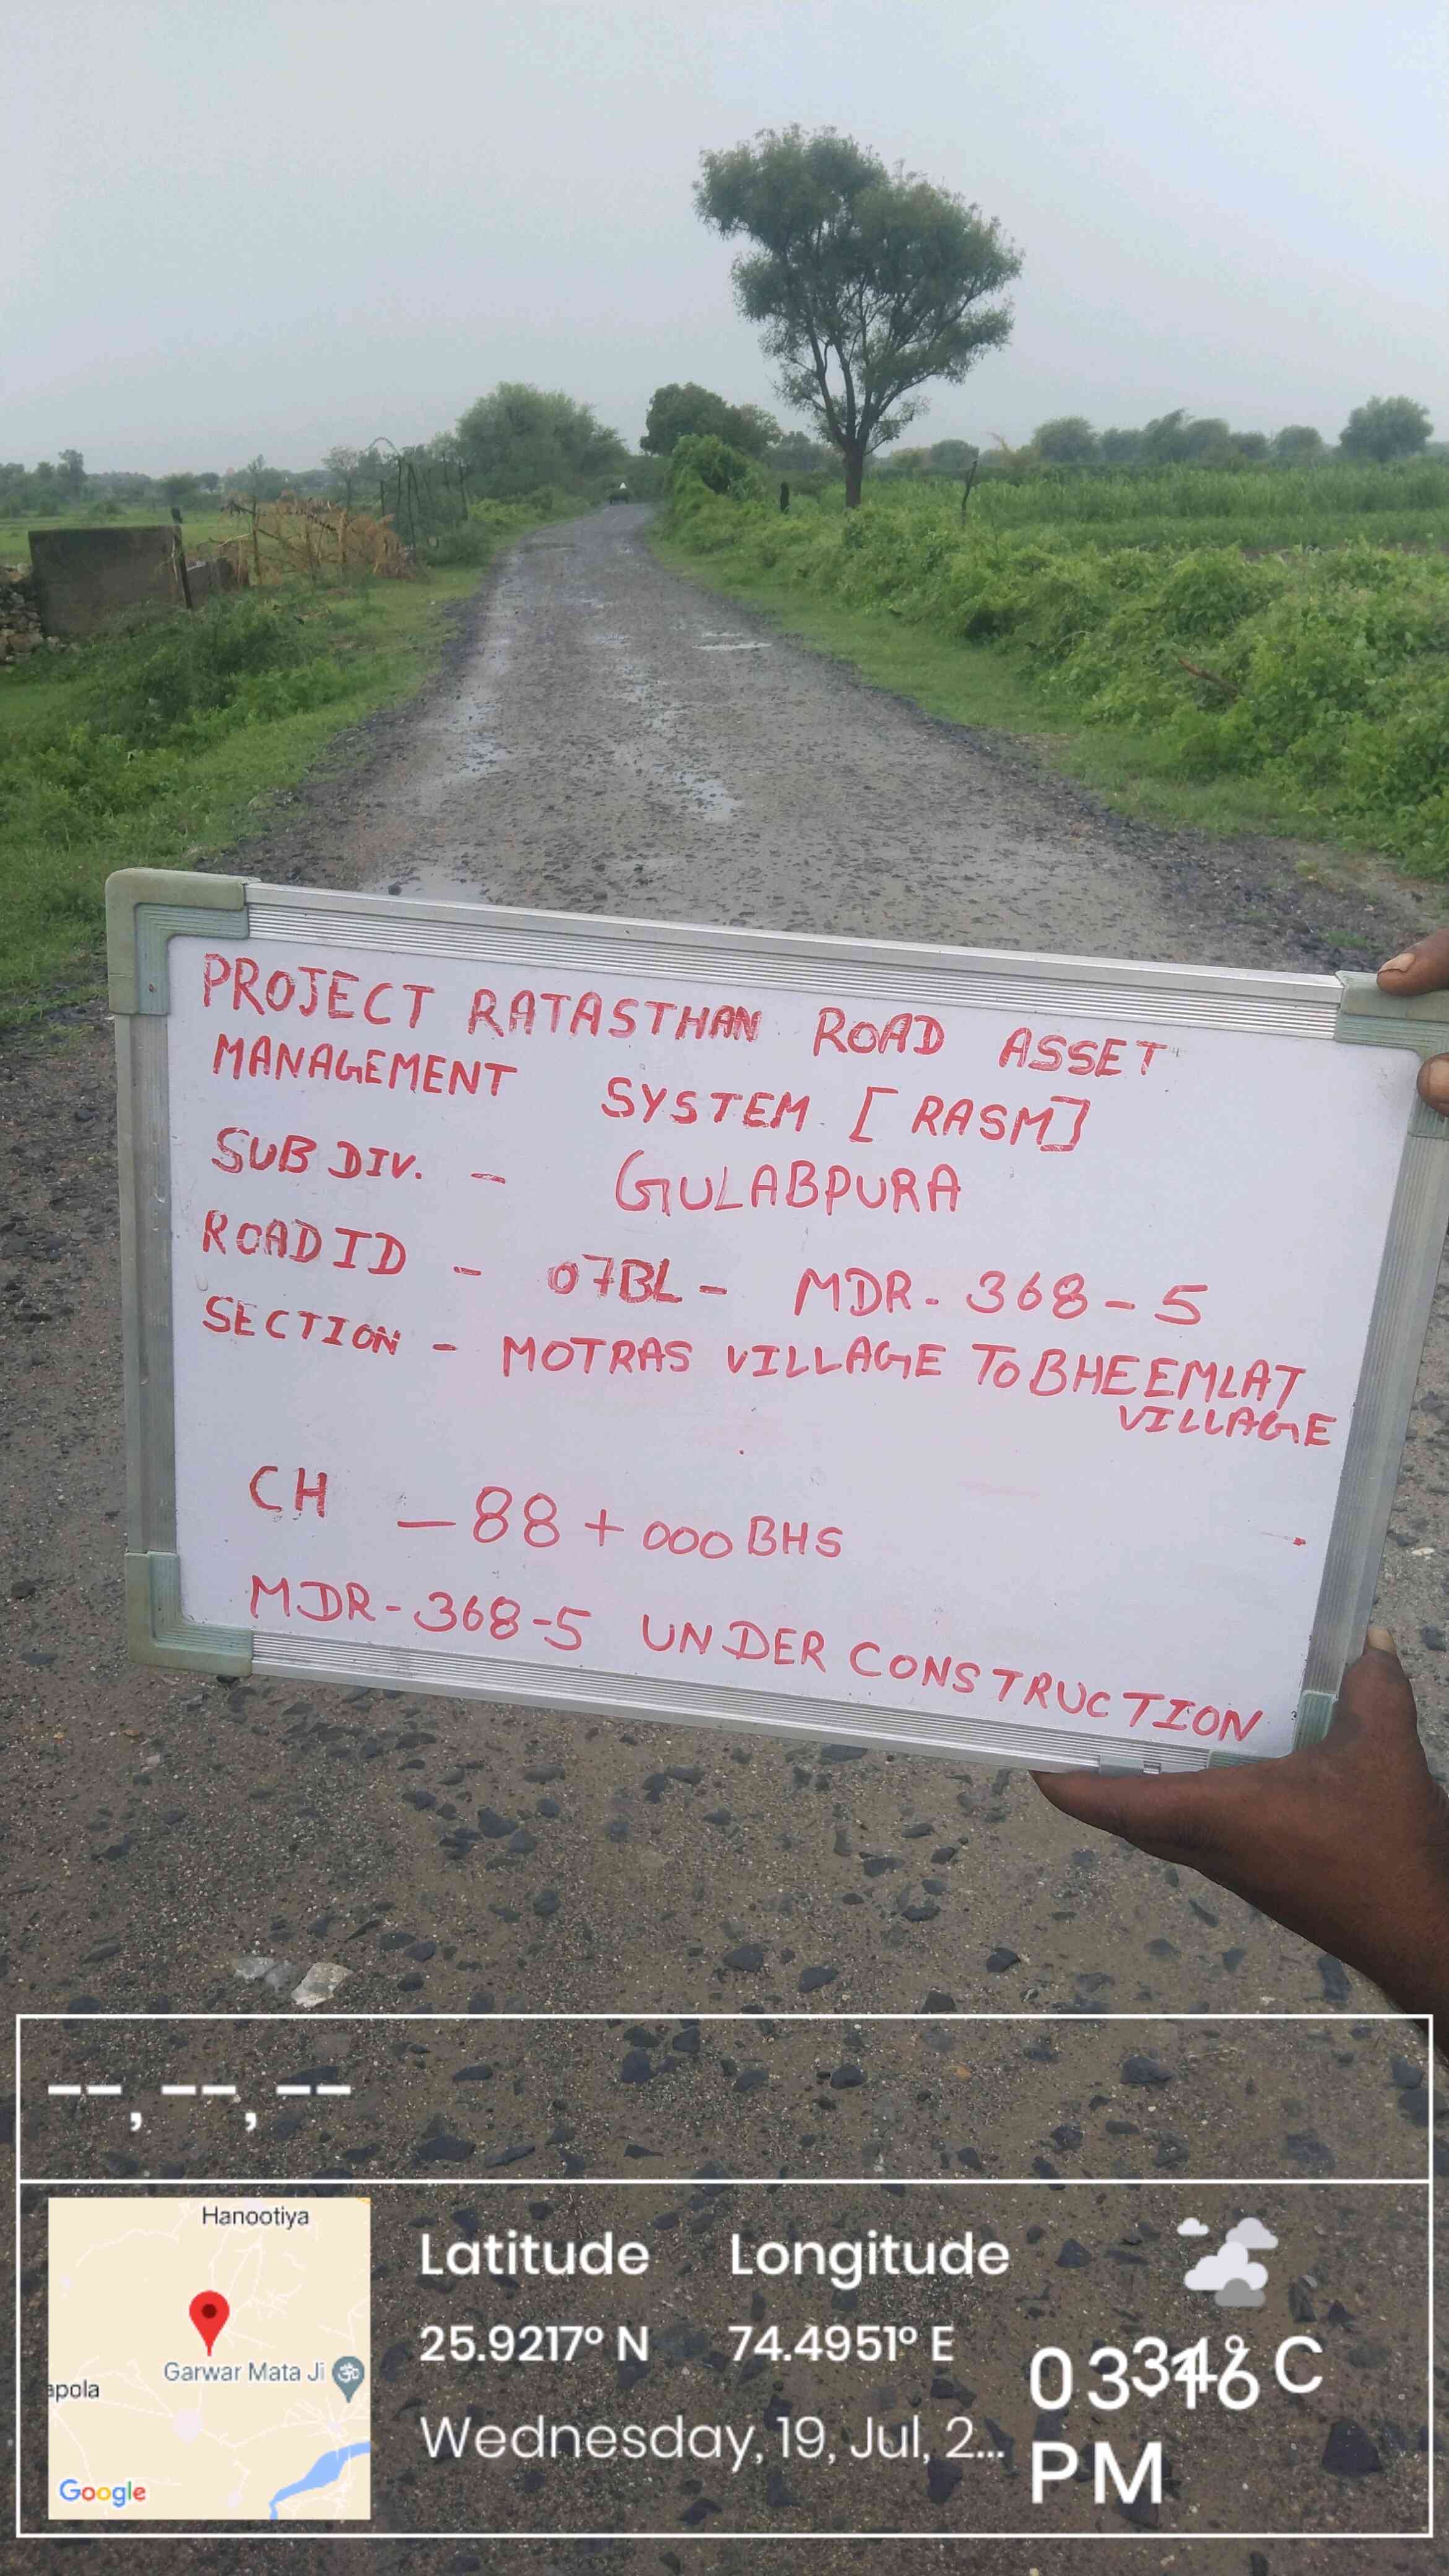 PROJECT RATASTHAN ROAD ASSET
MANAGEMENT SYSTEM [RASM]
SUB DIV. - GULABPURA
ROAD ID - 07BL - MDR-368-5
SECTION - MOTRAS VILLAGE TO BHEEMLAT
VILLAGE
CH - 88+000 BHS
MDR-368-5 UNDER CONSTRUCTION
--, --, --
Hanootiya
Garwar Mata Ji
apola
Google
Latitude Longitude
25.9217° N 74.4951° E
Wednesday, 19, Jul, 2...
PM